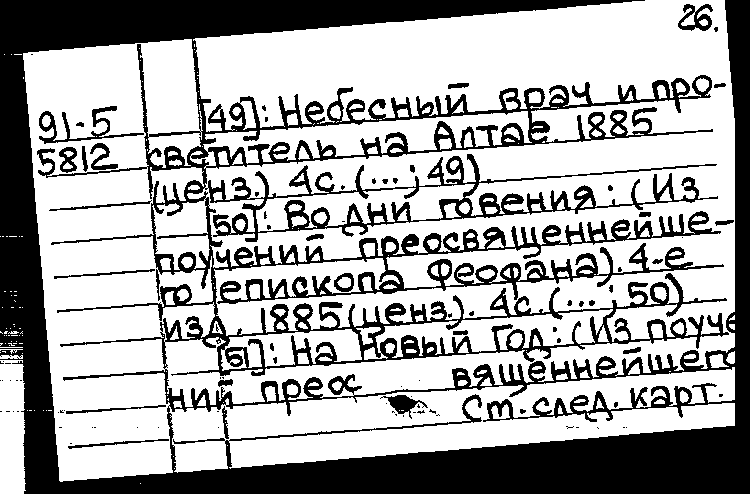 26.
91-5 [49]: Небесный врач и про-
5812 светитель на Алтае. 1885
(ценз.). 4с. (...; 49).
[50]: Во дни говения: (Из
поучений преосвященнейше-
го епископа Феофана). 4-е
изд. 1885 (ценз.). 4с. (...; 50).
[51]: На Новый Год: (Из поуче
ний преосвященнейшего
См. след. карт.